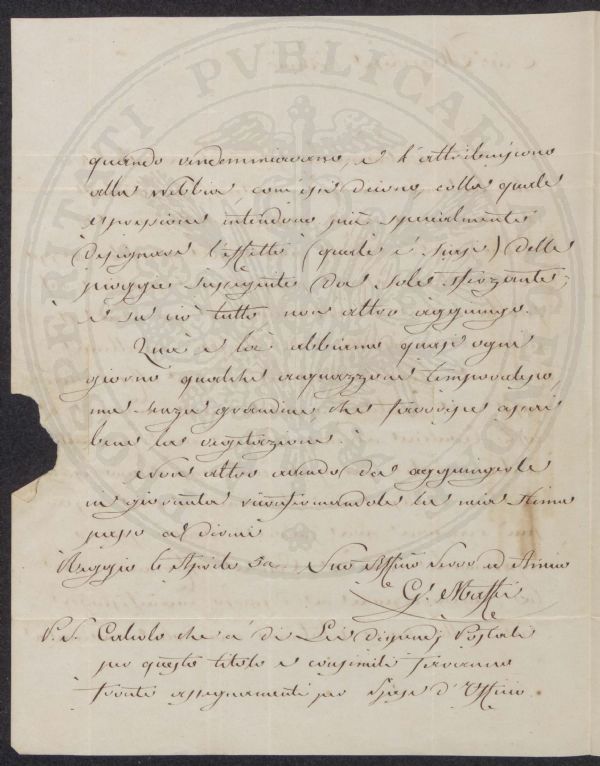 quando vendemmiavano, e l'attribuiscono
alla nebbia, com'essi dicono, colla quale
espressione intendono più specialmente
designare l'effetto (quale è forse) delle
piogge susseguite da sole sferzante;
e su ciò tutto non altro aggiungo.
Quà e là abbiamo quasi ogni
giorno qualche acquazzone temporalesco,
ma senza grandine che favorisce assai
bene la vegetazione.
Non altro avendo da aggiungerle
raffermandole la mia stima
passo a dirmi
Reggio li Aprile 52 Suo Affmo Servo ed Amico
G. Maffei
P.S. Calcolo che a di Lei dispendj Postali
per questo titolo e consimili faranno
fronte assegnamenti per Spese d'Uffizio.